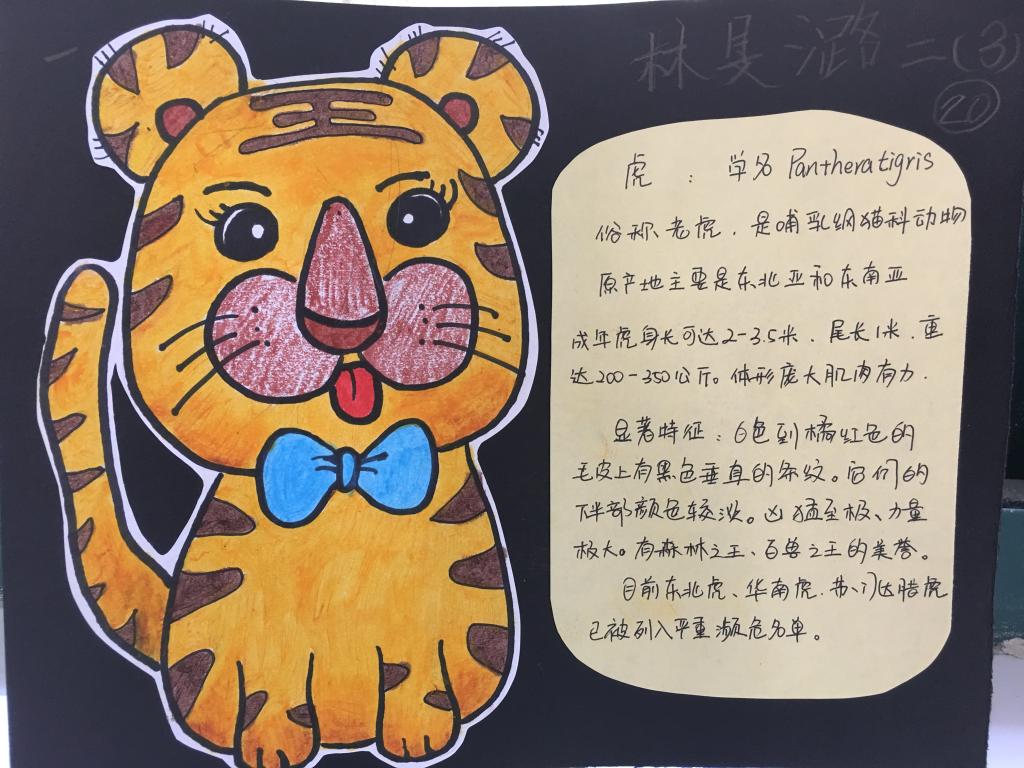 林昊潞 二(3)
20
王
虎：学名 Panthera tigris
俗称老虎，是哺乳纲猫科动物
原产地主要是东北亚和东南亚
成年虎身长可达2-3.5米，尾长1米，重
达200-350公斤。体形庞大肌肉有力.
显著特征：白色到橘红色的
毛皮上有黑色垂直的条纹。它们的
下半部颜色较淡。凶猛至极、力量
极大。有森林之王、百兽之王的美誉。
目前东北虎、华南虎.苏门达腊虎
已被列入严重濒危名单。